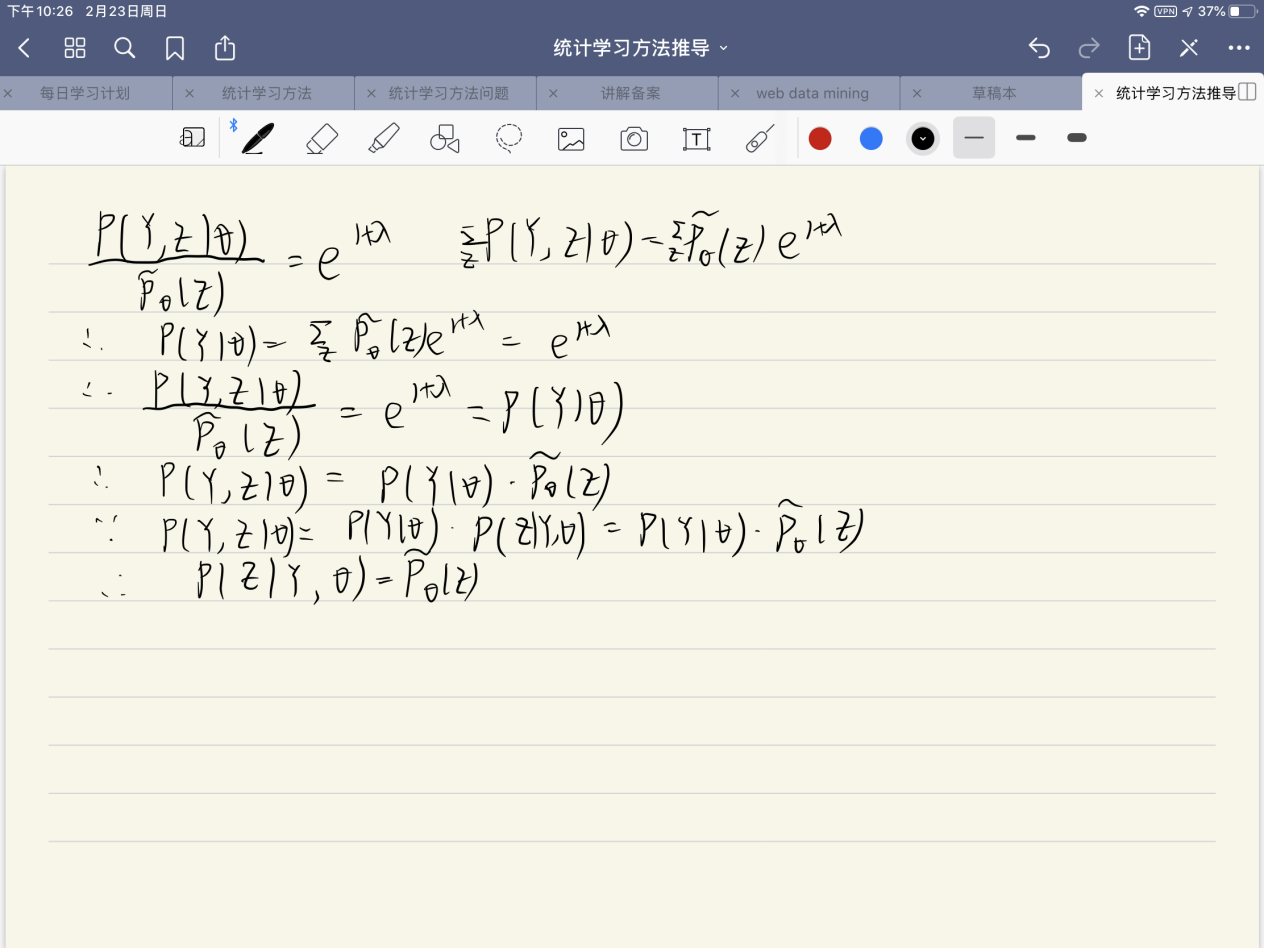 下午10:26 2月23日周日
VPN 37%
统计学习方法推导
每日学习计划 统计学习方法 统计学习方法问题 讲解备案 web data mining 草稿本 统计学习方法推导
a T
P(Y,Z|θ) / P̃_θ(Z) = e^{1+λ} Σ_Z P(Y,Z|θ) = Σ_Z P̃_θ(Z) e^{1+λ}
∴ P(Y|θ) = Σ_Z P̃_θ(Z) e^{1+λ} = e^{1+λ}
∴ P(Y,Z|θ) / P̃_θ(Z) = e^{1+λ} = P(Y|θ)
∴ P(Y,Z|θ) = P(Y|θ) · P̃_θ(Z)
∵ P(Y,Z|θ) = P(Y|θ) · P(Z|Y,θ) = P(Y|θ) · P̃_θ(Z)
∴ P(Z|Y,θ) = P̃_θ(Z)